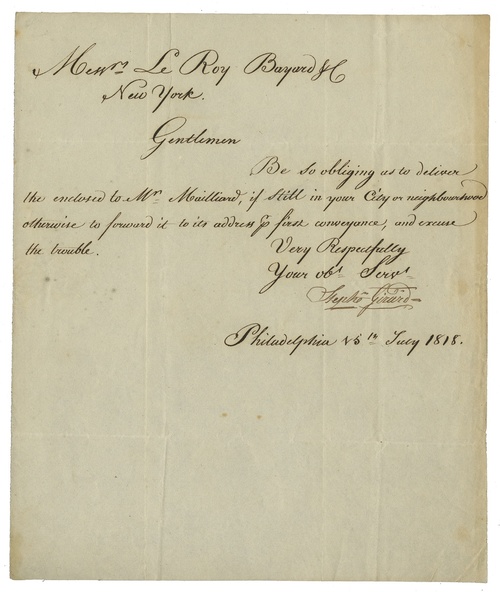 Messrs. Le Roy Bayard & C
New York.
Gentlemen
Be so obliging as to deliver
the enclosed to Mr. Mailliard, if still in your City or neighbourhood
otherwise to forward it to its address p first conveyance, and excuse
the trouble.
Very Respectfully
Your obt. Servt.
Stephn Girard
Philadelphia th July 1818.